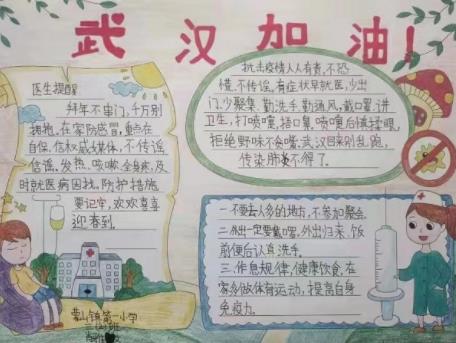 武汉加油!
医生提醒
拜年不串门,千万别
拥抱,在家防感冒,重点在
自保,信权威媒体,不传谣
信谣,发热、咳嗽、全身疼,及
时就医病因找,防护措施
要记牢,欢欢喜喜
迎春到。
抗击疫情人人有责,不恐
慌,不传谣,有症状早就医,少出
门,少聚集,勤洗手,勤通风,戴口罩,讲
卫生,打喷嚏,捂口鼻,喷嚏后慎揉眼,
拒绝野味不贪嘴,武汉目来别乱跑,
传染肺炎不得了。
一.不要去人多的地方,不参加聚会。
二.外出一定要戴口罩,外出归来、饭
前便后认真洗手。
三.作息规律,健康饮食,在
家多做体育运动,提高自身
免疫力。
第一小学